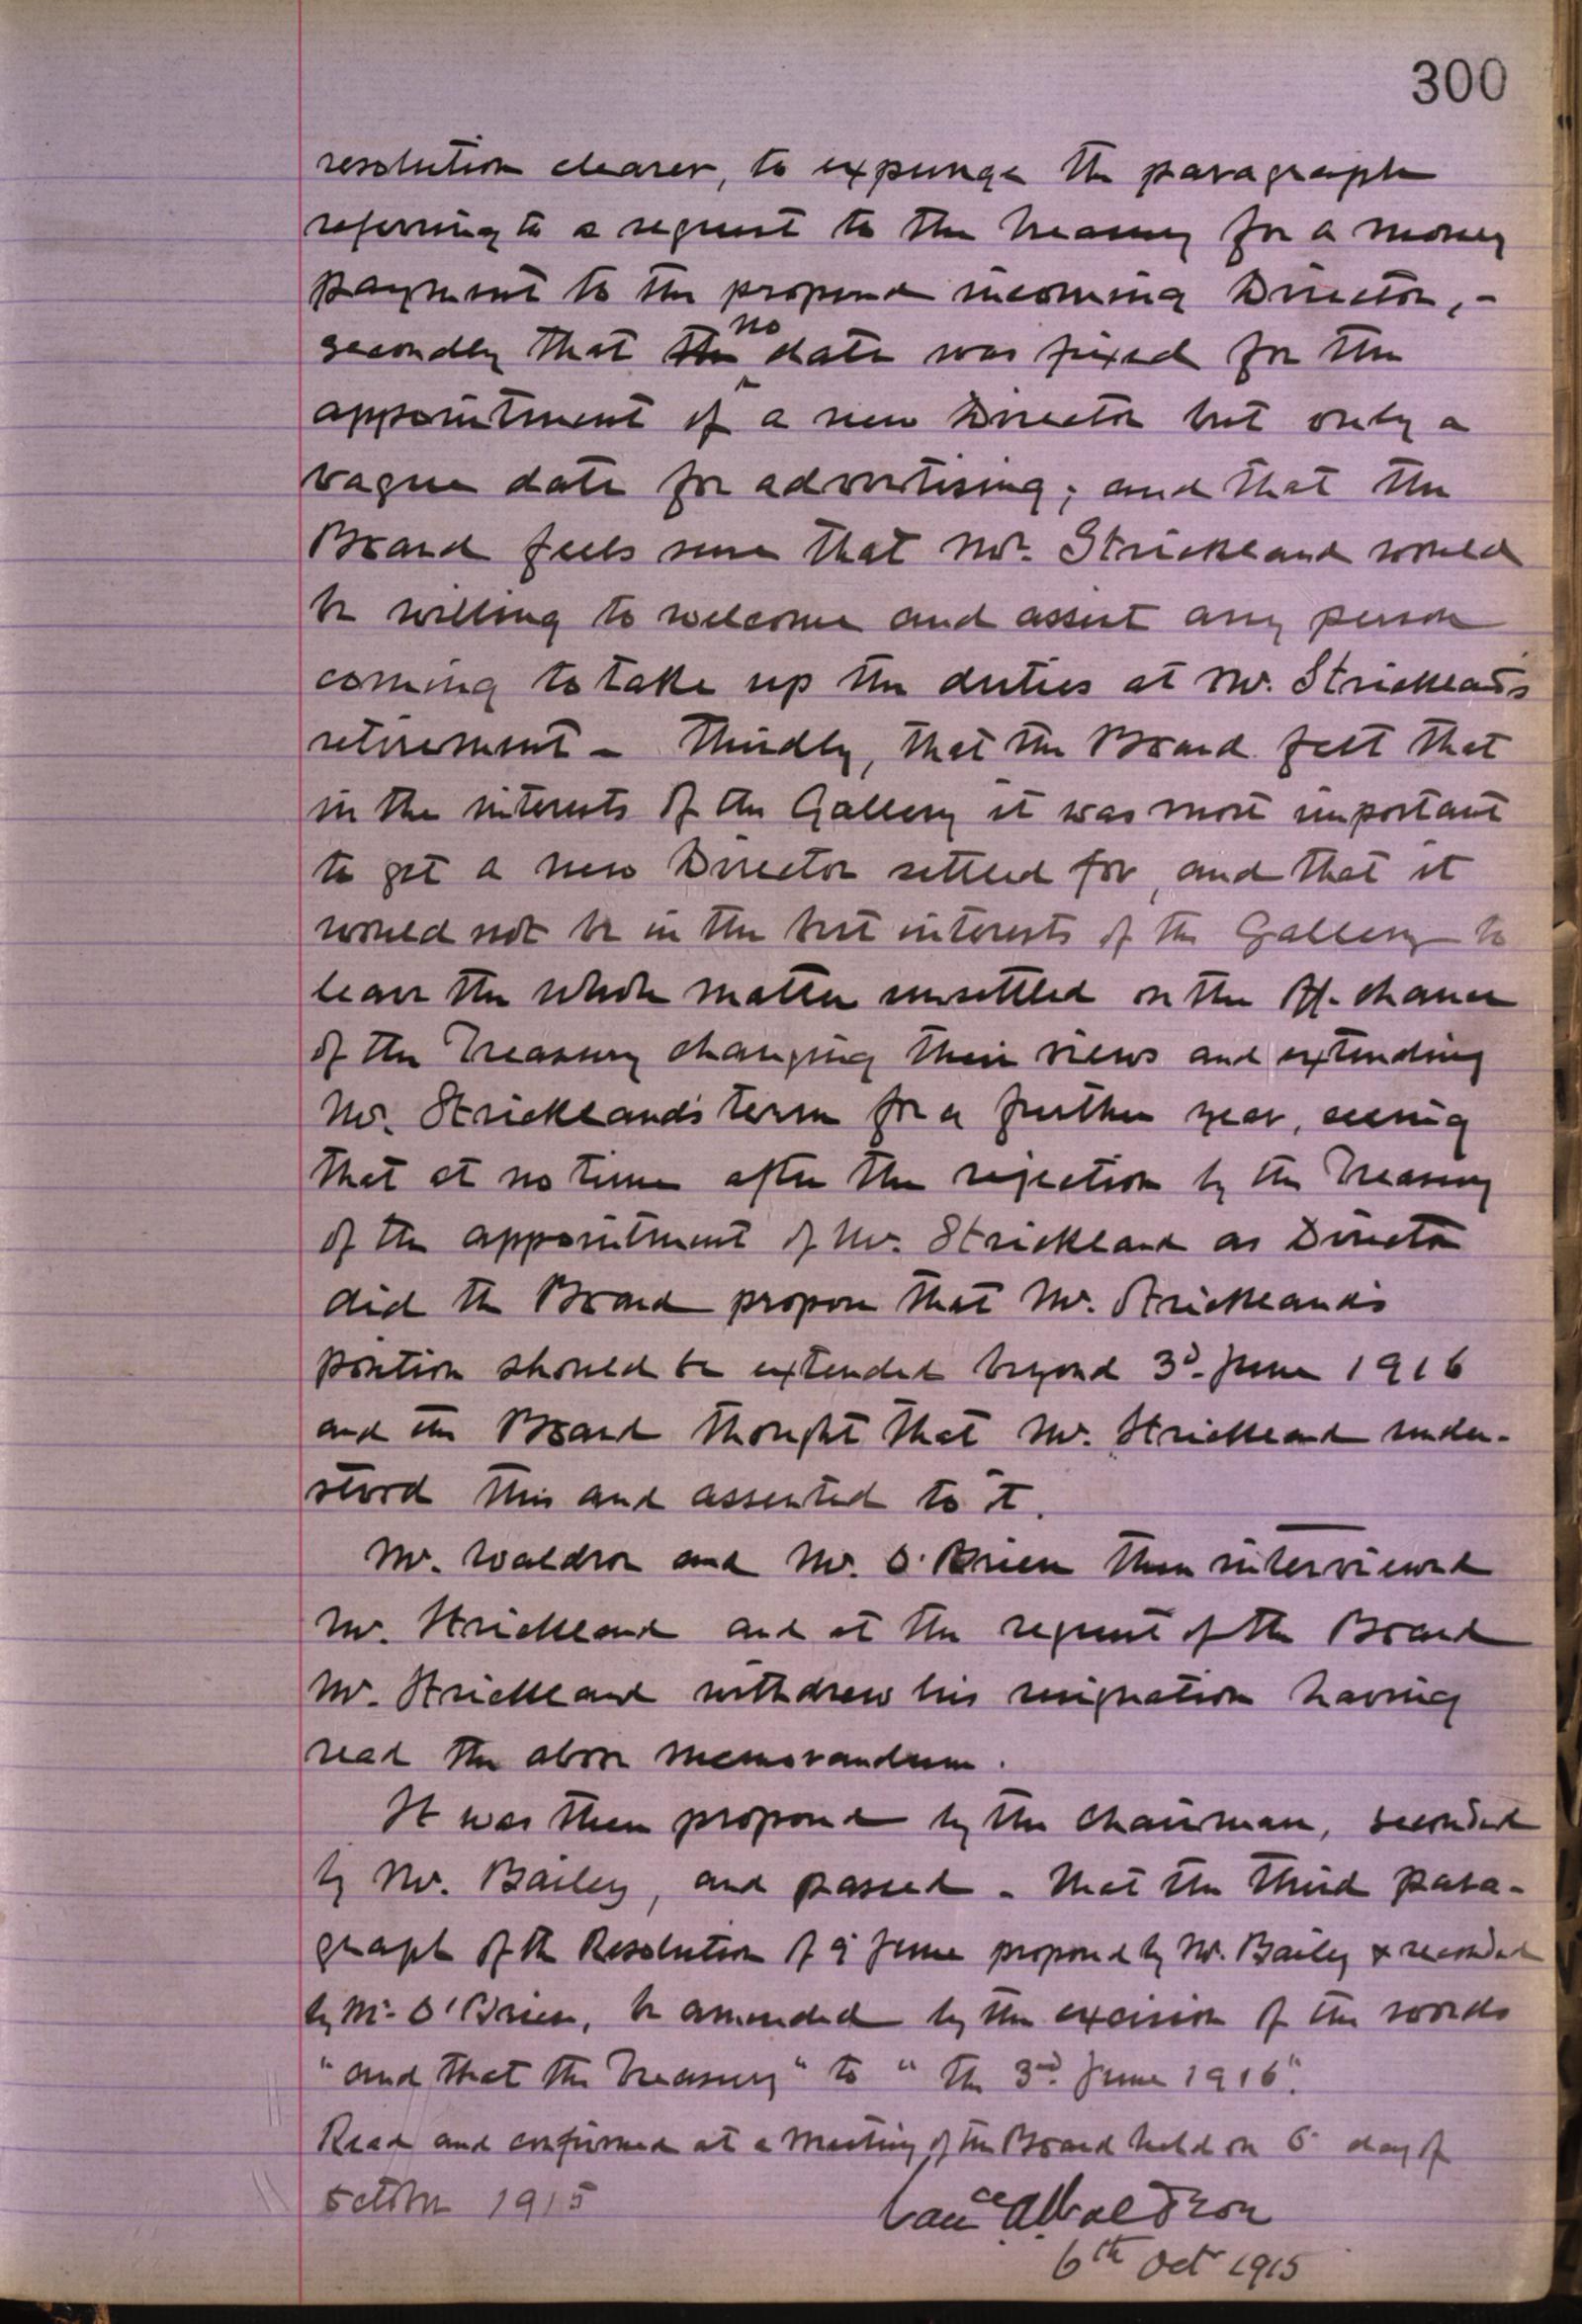 300
resolution clearer, to expunge the paragraph
referring to a request to the Treasury for a money
payment to the proposed incoming Director, -
secondly that the no date was fixed for the
appointment of a new Director but only a
vague date for advertising; and that the
Board feels sure that Mr. Strickland would
be willing to welcome and assist any person
coming to take up the duties at Mr. Strickland's
retirement - Thirdly, that the Board felt that
in the interests of the Gallery it was most important
to get a new Director settled for, and that it
would not be in the best interests of the Gallery to
leave the whole matter unsettled on the off-chance
of the Treasury changing their views and extending
Mr. Strickland's term for a further year, seeing
that at no time after the rejection by the Treasury
of the appointment of Mr. Strickland as Director
did the Board propose that Mr. Strickland's
position should be extended beyond 3d. June 1916
and the Board thought that Mr. Strickland under-
stood this and assented to it.
Mr. Waldron and Mr. O'Brien then interviewed
Mr. Strickland and at the request of the Board
Mr. Strickland withdrew his resignation having
read the above memorandum.
It was then proposed by the Chairman, seconded
by Mr. Bailey, and passed - that the third para-
graph of the Resolution of 9 June proposed by Mr. Bailey & seconded
by Mr. O'Brien, be amended by the excision of the words
"and that the Treasury" to "the 3rd. June 1916".
Read and confirmed at a Meeting of the Board held on 6 day of
October 1915
Laurce A Waldron
6th Oct 1915